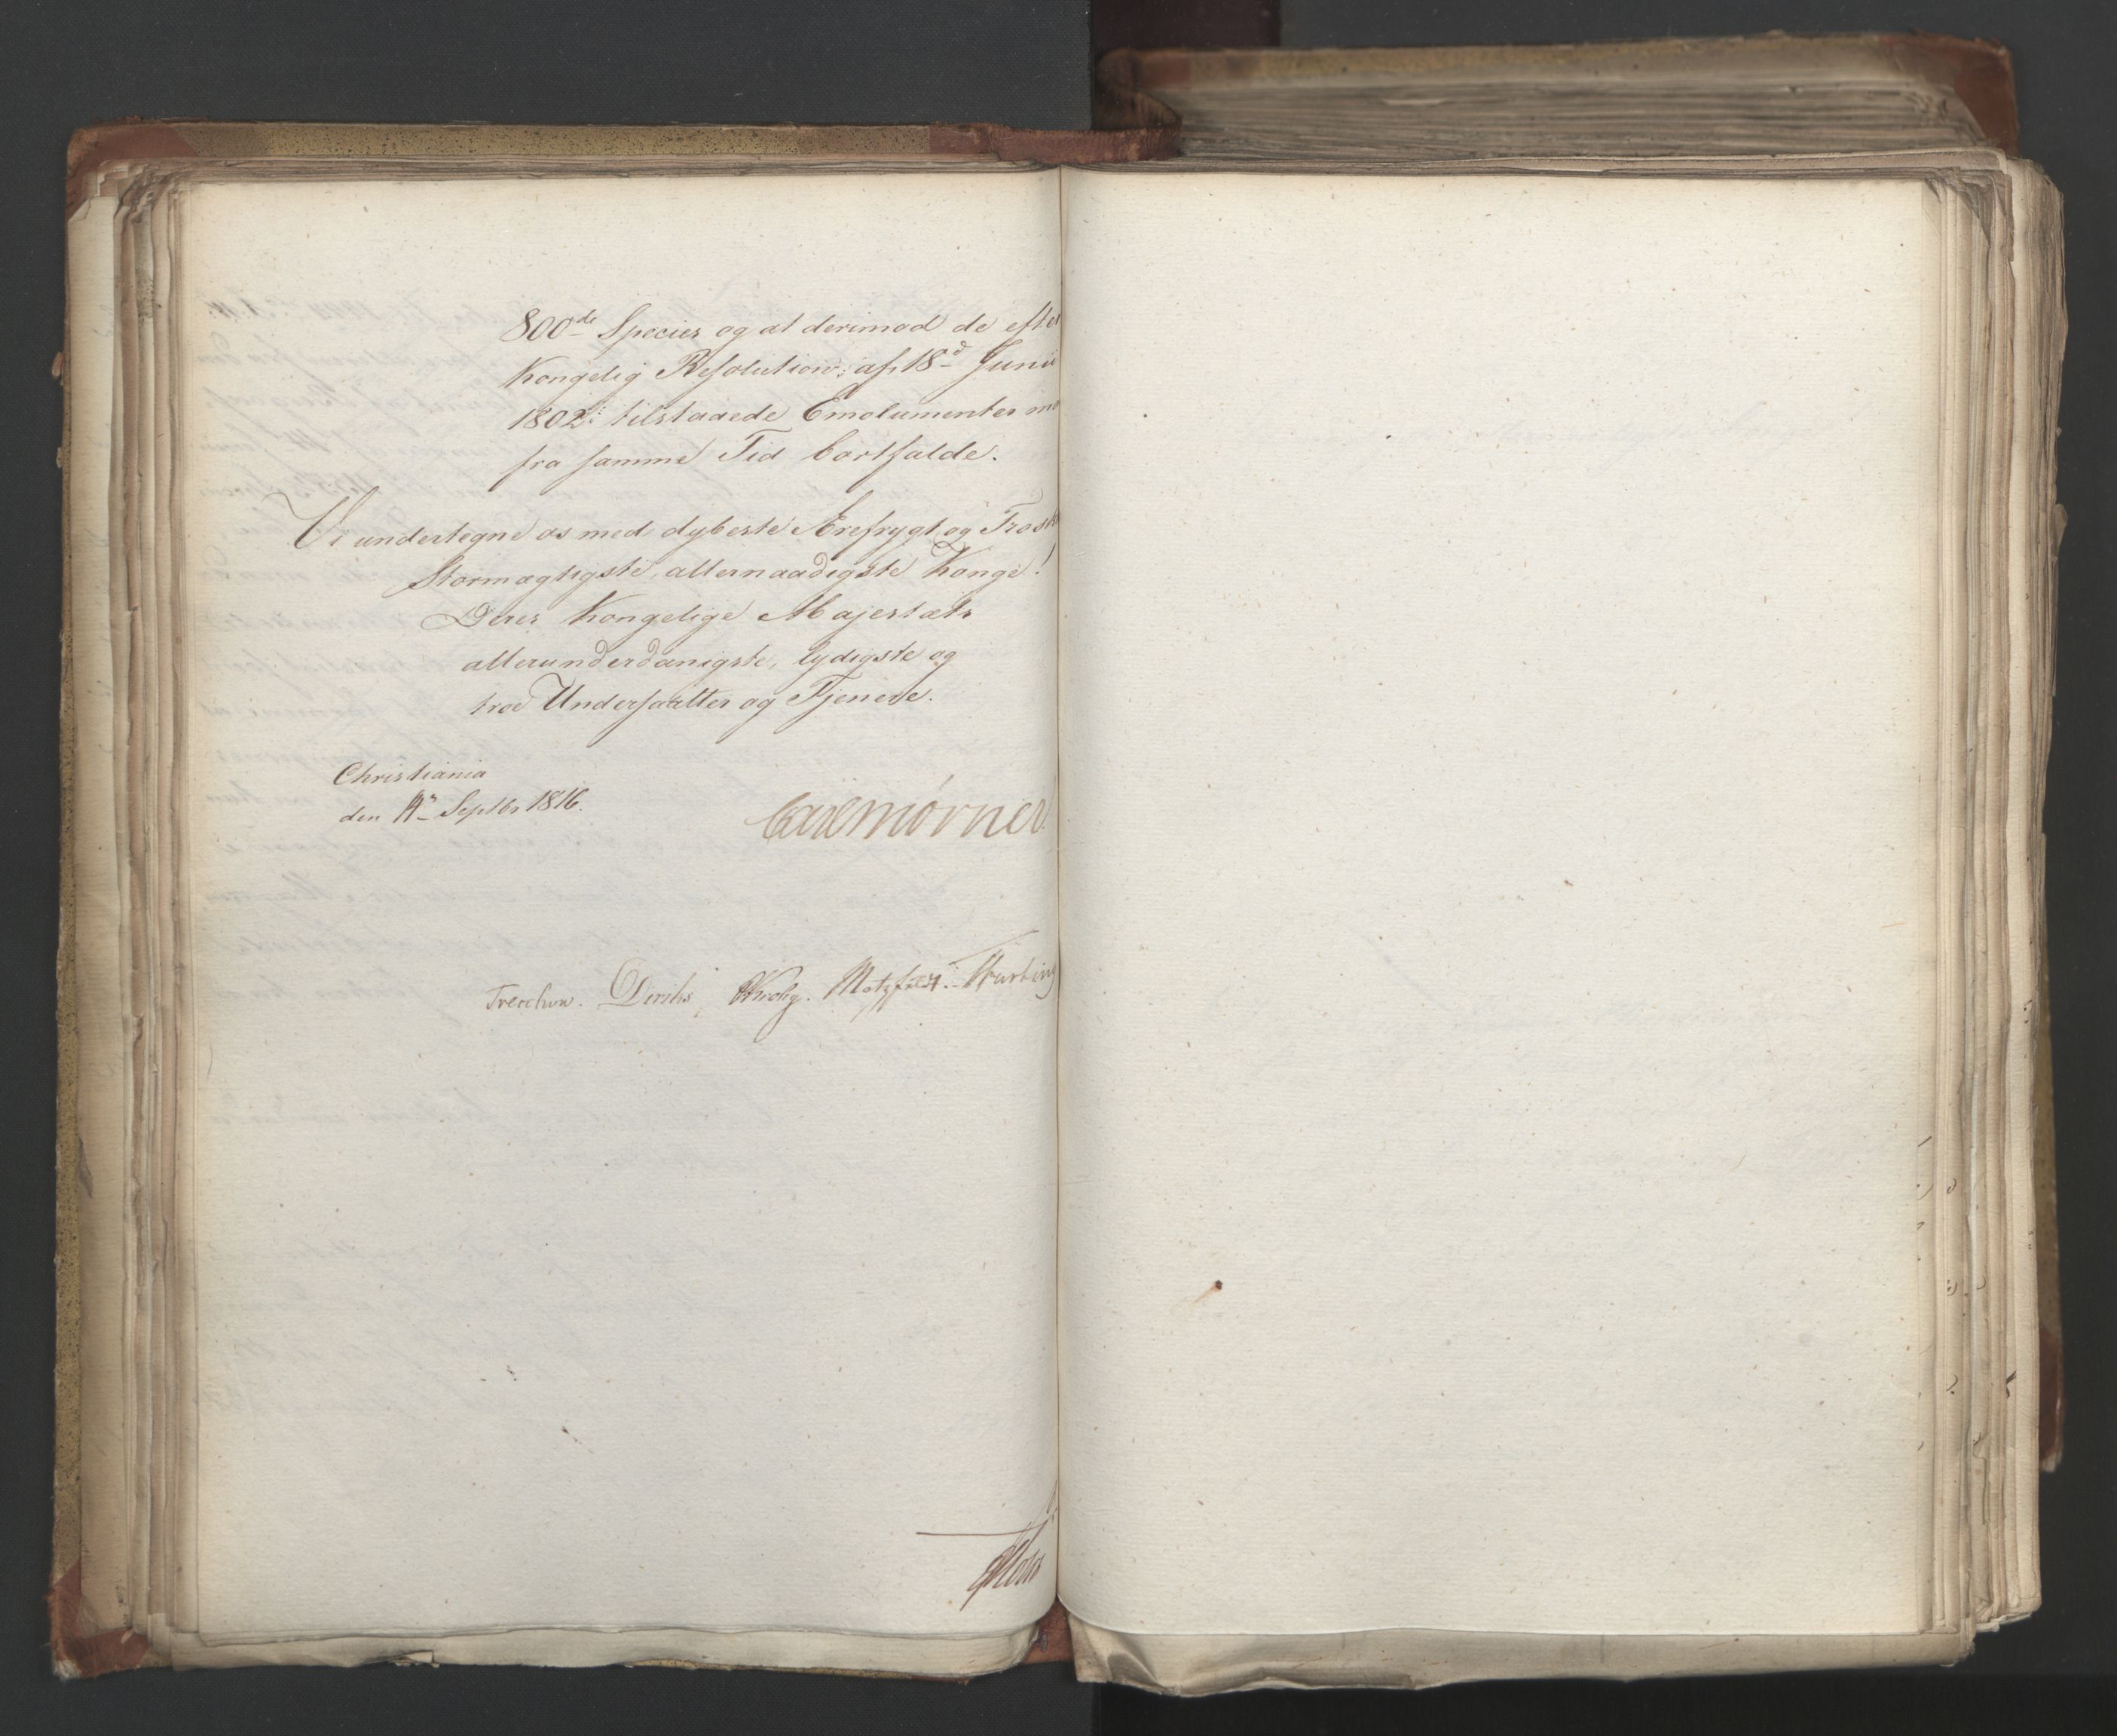 800de Species og at derimod de efter
Kongelig Resolution af 18d Junii
1802 tilstaaede Emolumenter
fra samme Tid bortfalde.
Vi undertegne os med dybeste Ærefrygt og
Stormægtigste, allernaadigste Konge!
Deres Kongelige Majestæts
allerunderdanigste, lydigste og
troe Undersaatter og Tjenere.
Christiania
den Septbr 1816.
Carl Mörner
Treschow. Diriks, Krohg. Motzfeldt.